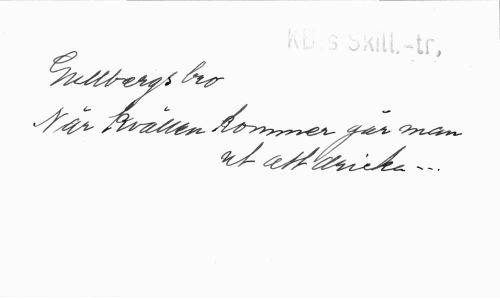 KB:s Skill.-tr,
Gullbergs bro
När kvällen kommer går man
ut att dricka ...